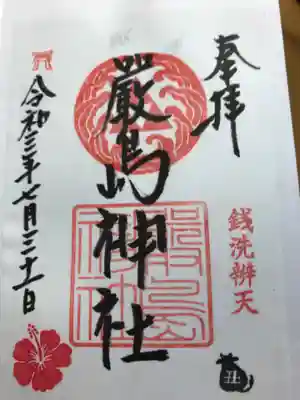 奉拝
銭洗辨天
丑
嚴島神社
嚴島神社
令和三年七月三十一日